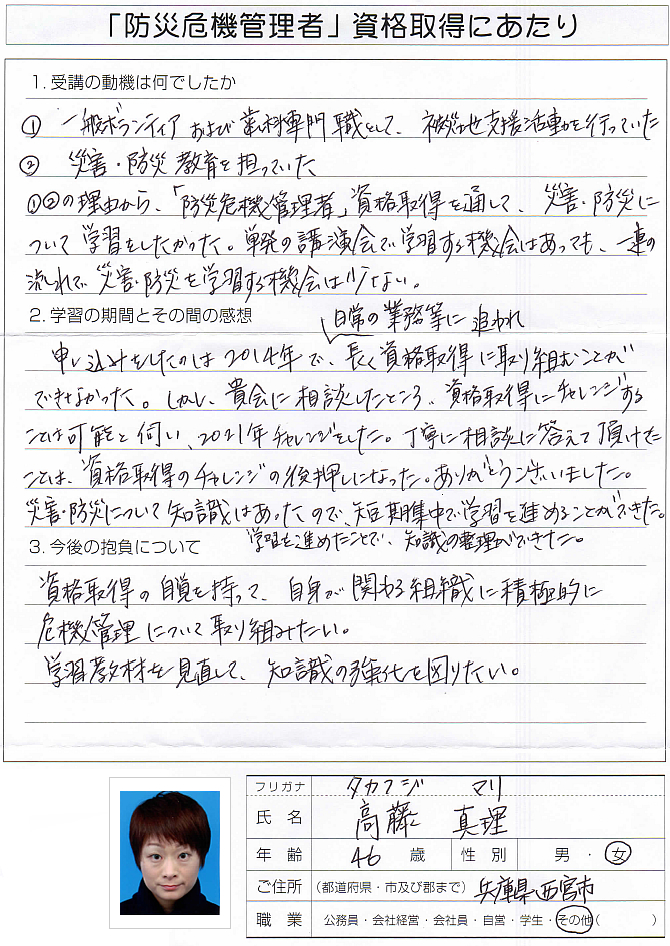 「防災危機管理者」資格取得にあたり
1. 受講の動機は何でしたか
① 一般ボランティア および 歯科専門職として、被災地支援活動を行っていた
② 災害・防災教育を担っていた
①②の理由から、「防災危機管理者」資格取得を通して、災害・防災に
ついて学習をしたかった。単発の講演会で学習する機会はあっても、一連の
流れで災害・防災を学習する機会は少ない。
2. 学習の期間とその間の感想
日常の業務等に追われ
申し込みをしたのは2014年で、長く資格取得に取り組むことが
できなかった。しかし、貴会に相談したところ、資格取得にチャレンジする
ことは可能と伺い、2021年チャレンジをした。丁寧に相談に答えて頂けた
ことは、資格取得のチャレンジの後押しになった。ありがとうございました。
災害・防災について知識はあったので、短期集中で学習を進めることができた。
学習を進めたことで、知識の整理ができた。
3. 今後の抱負について
資格取得の自覚を持って、自身が関わる組織に積極的に
危機管理について取り組みたい。
学習教材を見直して、知識の強化を図りたい。
フリガナ タカフジ マリ
氏 名 高藤 真理
年 齢 46 歳 性 別 男 ・ 女
ご住所 (都道府県・市及び郡まで) 兵庫県西宮市
職 業 公務員・会社経営・会社員・自営・学生・その他( )